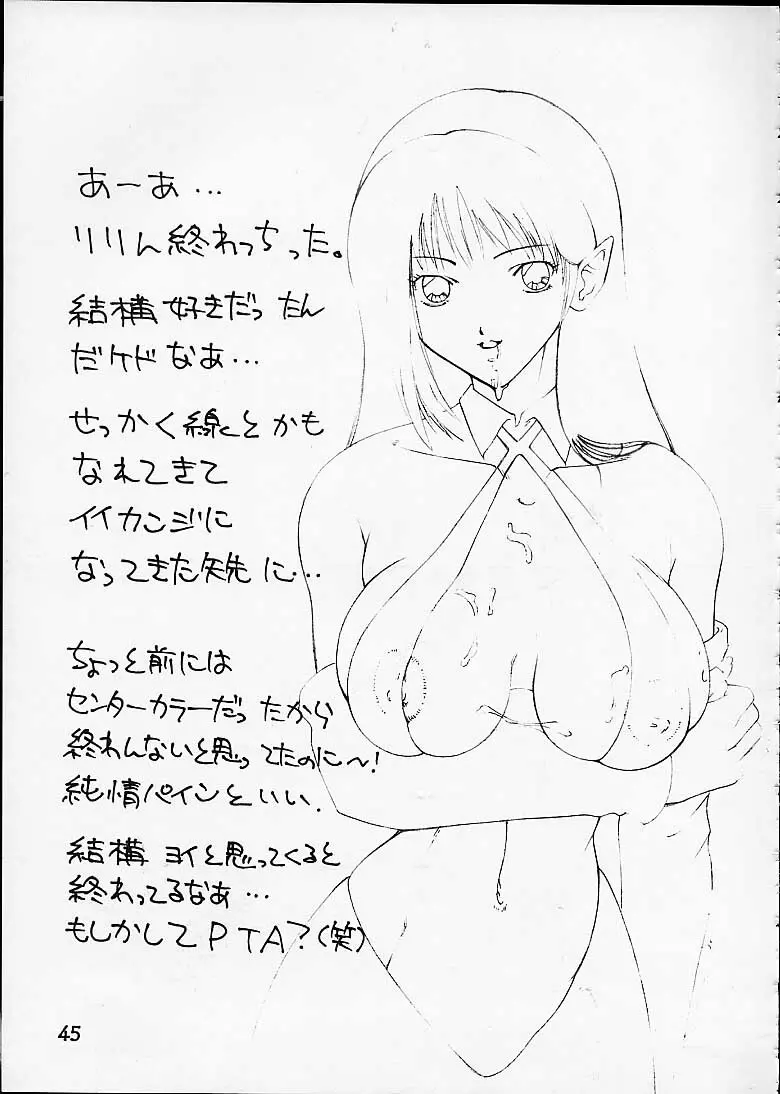 あーあ…
リリん終わっちった。
結構好きだったん
だケドなあ…
せっかく線とかも
なれてきて
イイカンジに
なってきた矢先に…
ちょっと前には
センターカラーだったから
終わんないと思ってたのに〜!
純情パインといい.
結構ヨイと思ってくると
終わってるなあ…
もしかしてPTA?(笑)
45